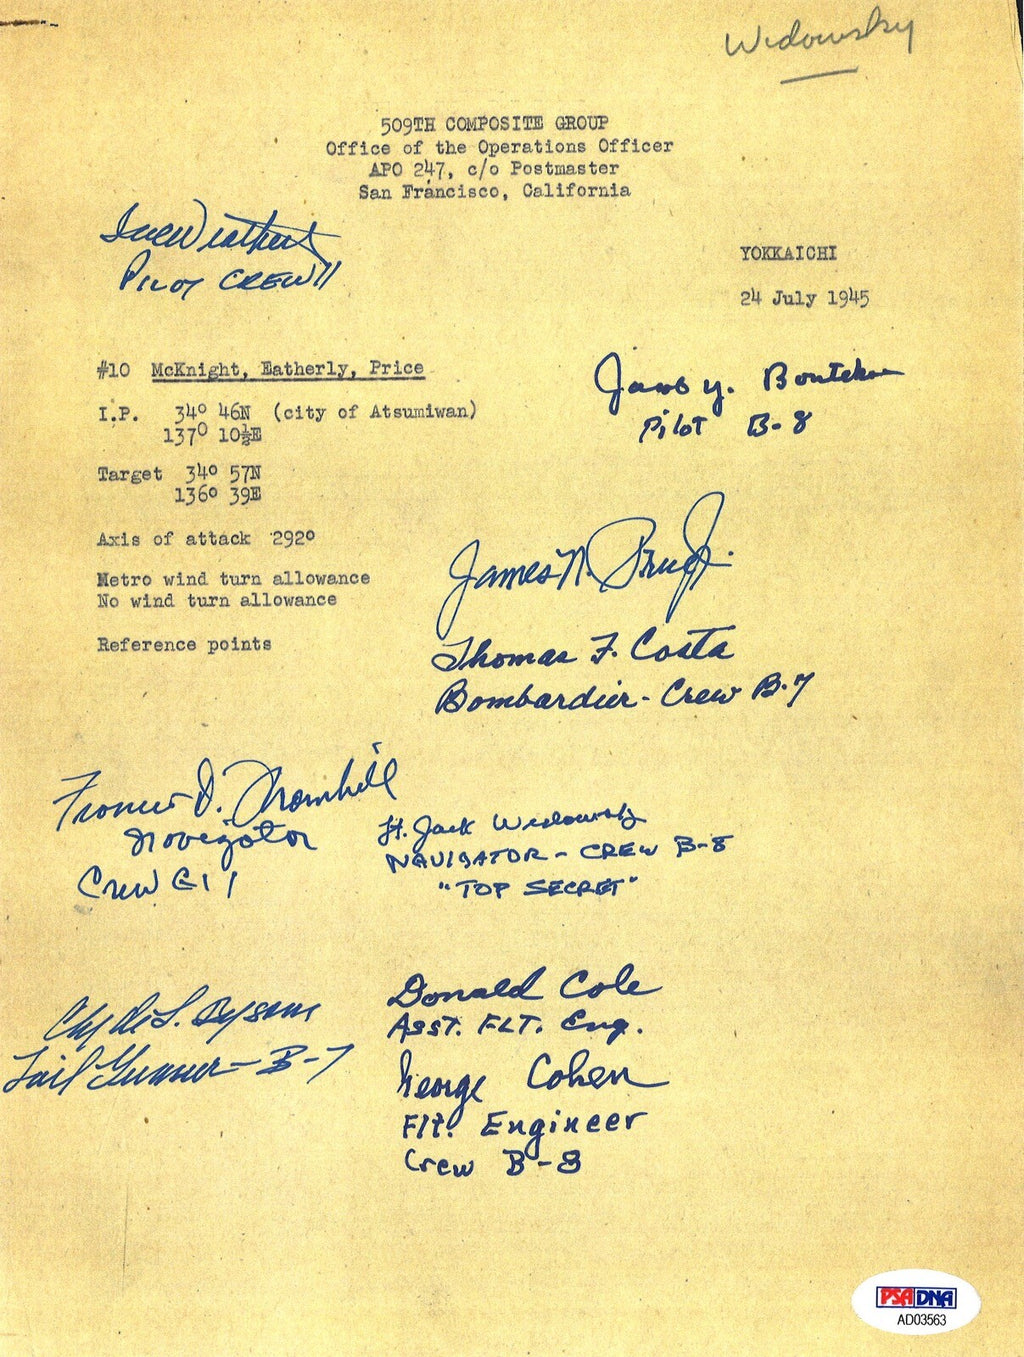 Widowsky
509TH COMPOSITE GROUP
Office of the Operations Officer
APO 247, c/o Postmaster
San Francisco, California
PILOT CREW 11
YOKKAICHI
24 July 1945
#10 McKnight, Eatherly, Price
I.P. 34° 46N (city of Atsumiwan)
137° 10½E
Jacob Y. Bontekoe
Pilot B-8
Target 34° 57N
136° 39E
Axis of attack 292°
Metro wind turn allowance
No wind turn allowance
Reference points
James N. Price Jr.
Thomas F. Costa
Bombardier - Crew B-7
Francis D. Thornhill
Navigator
Crew C11
Lt. Jack Widowsky
NAVIGATOR - CREW B-8
"TOP SECRET"
Clyde L. Bysom
Tail Gunner - B-7
Donald Cole
ASST. FLT. Eng.
George Cohen
Flt. Engineer
Crew B-8
PSA DNA
AD03563